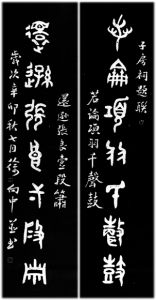 子房祠題联
若論項羽千聲鼓
若論項羽千聲鼓
還遜張良壹段簫
還遜張良一段簫
歲次辛卯秋七月徐